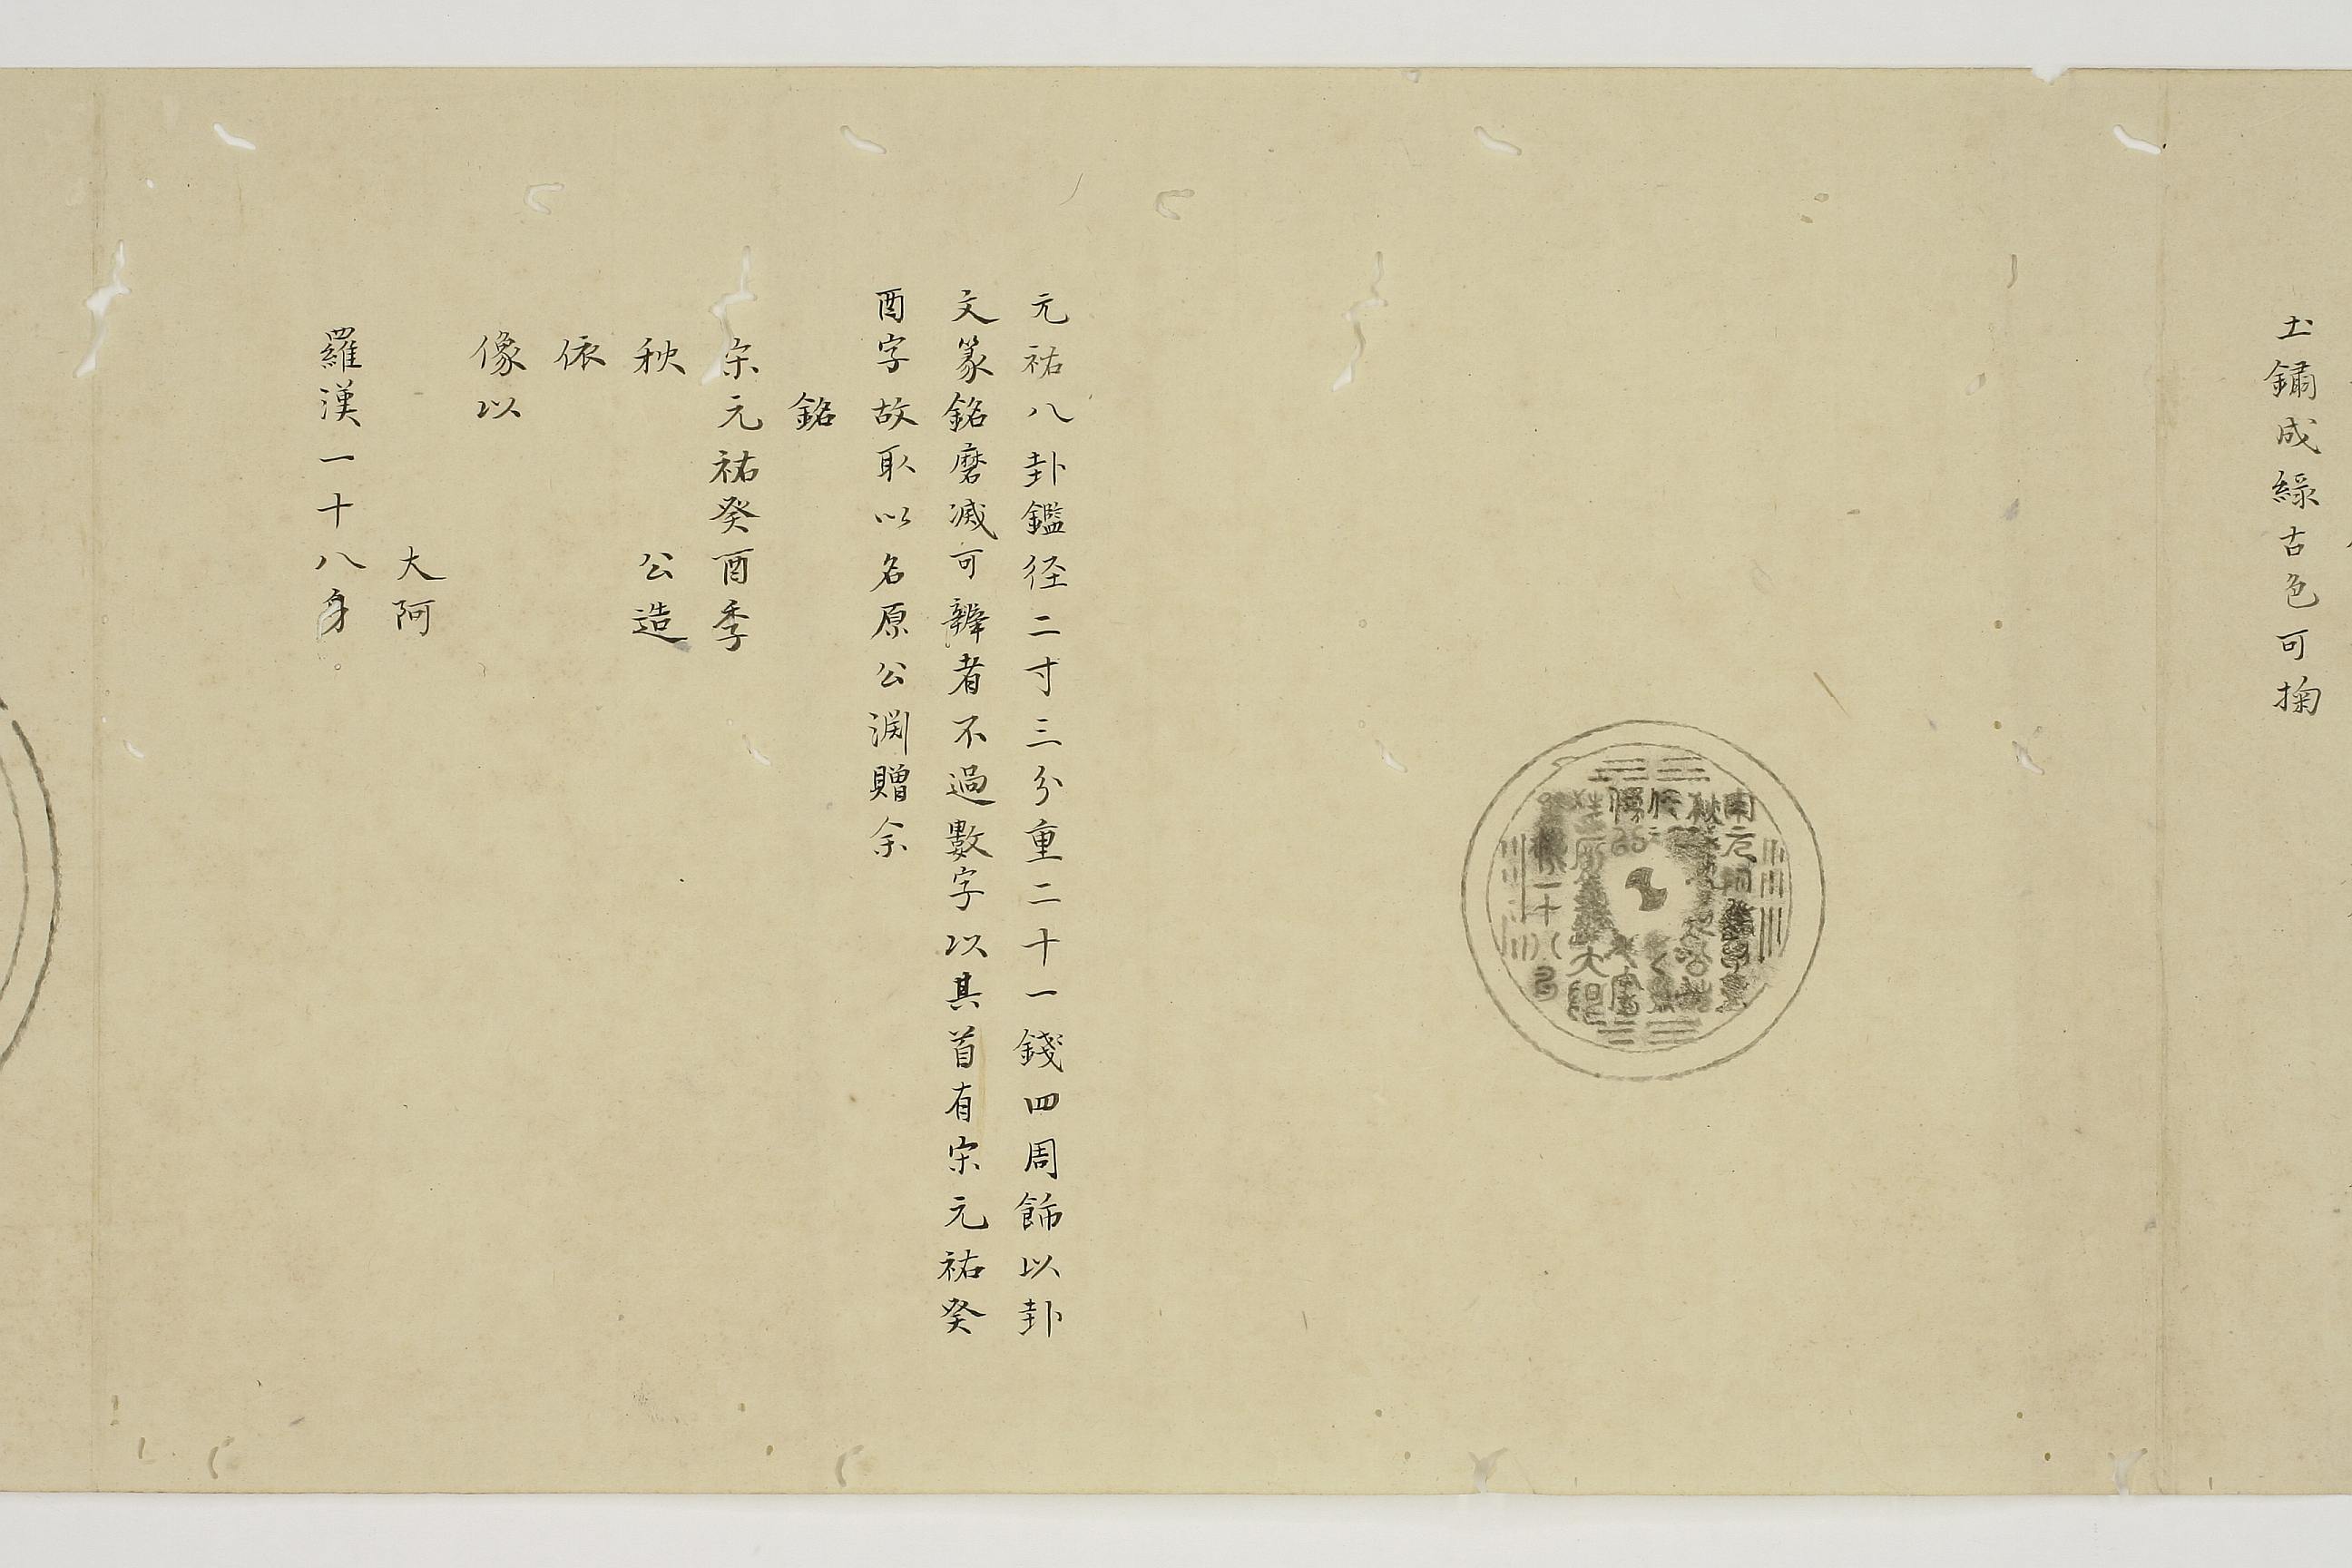 土鏽成綠古色可掬
元祐八卦鑑径二寸三分重二十一錢四周飾以卦
文篆銘磨滅可辨者不過數字以其首有宋元祐癸
酉字故取以名原公渕贈余
銘
宋元祐癸酉季
秋 公造
依
像以
大阿
羅漢一十八身